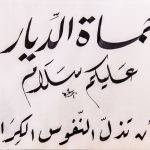 حماة الدّيار
عليكم سلام
أن تذلّ النّفوس الكرا